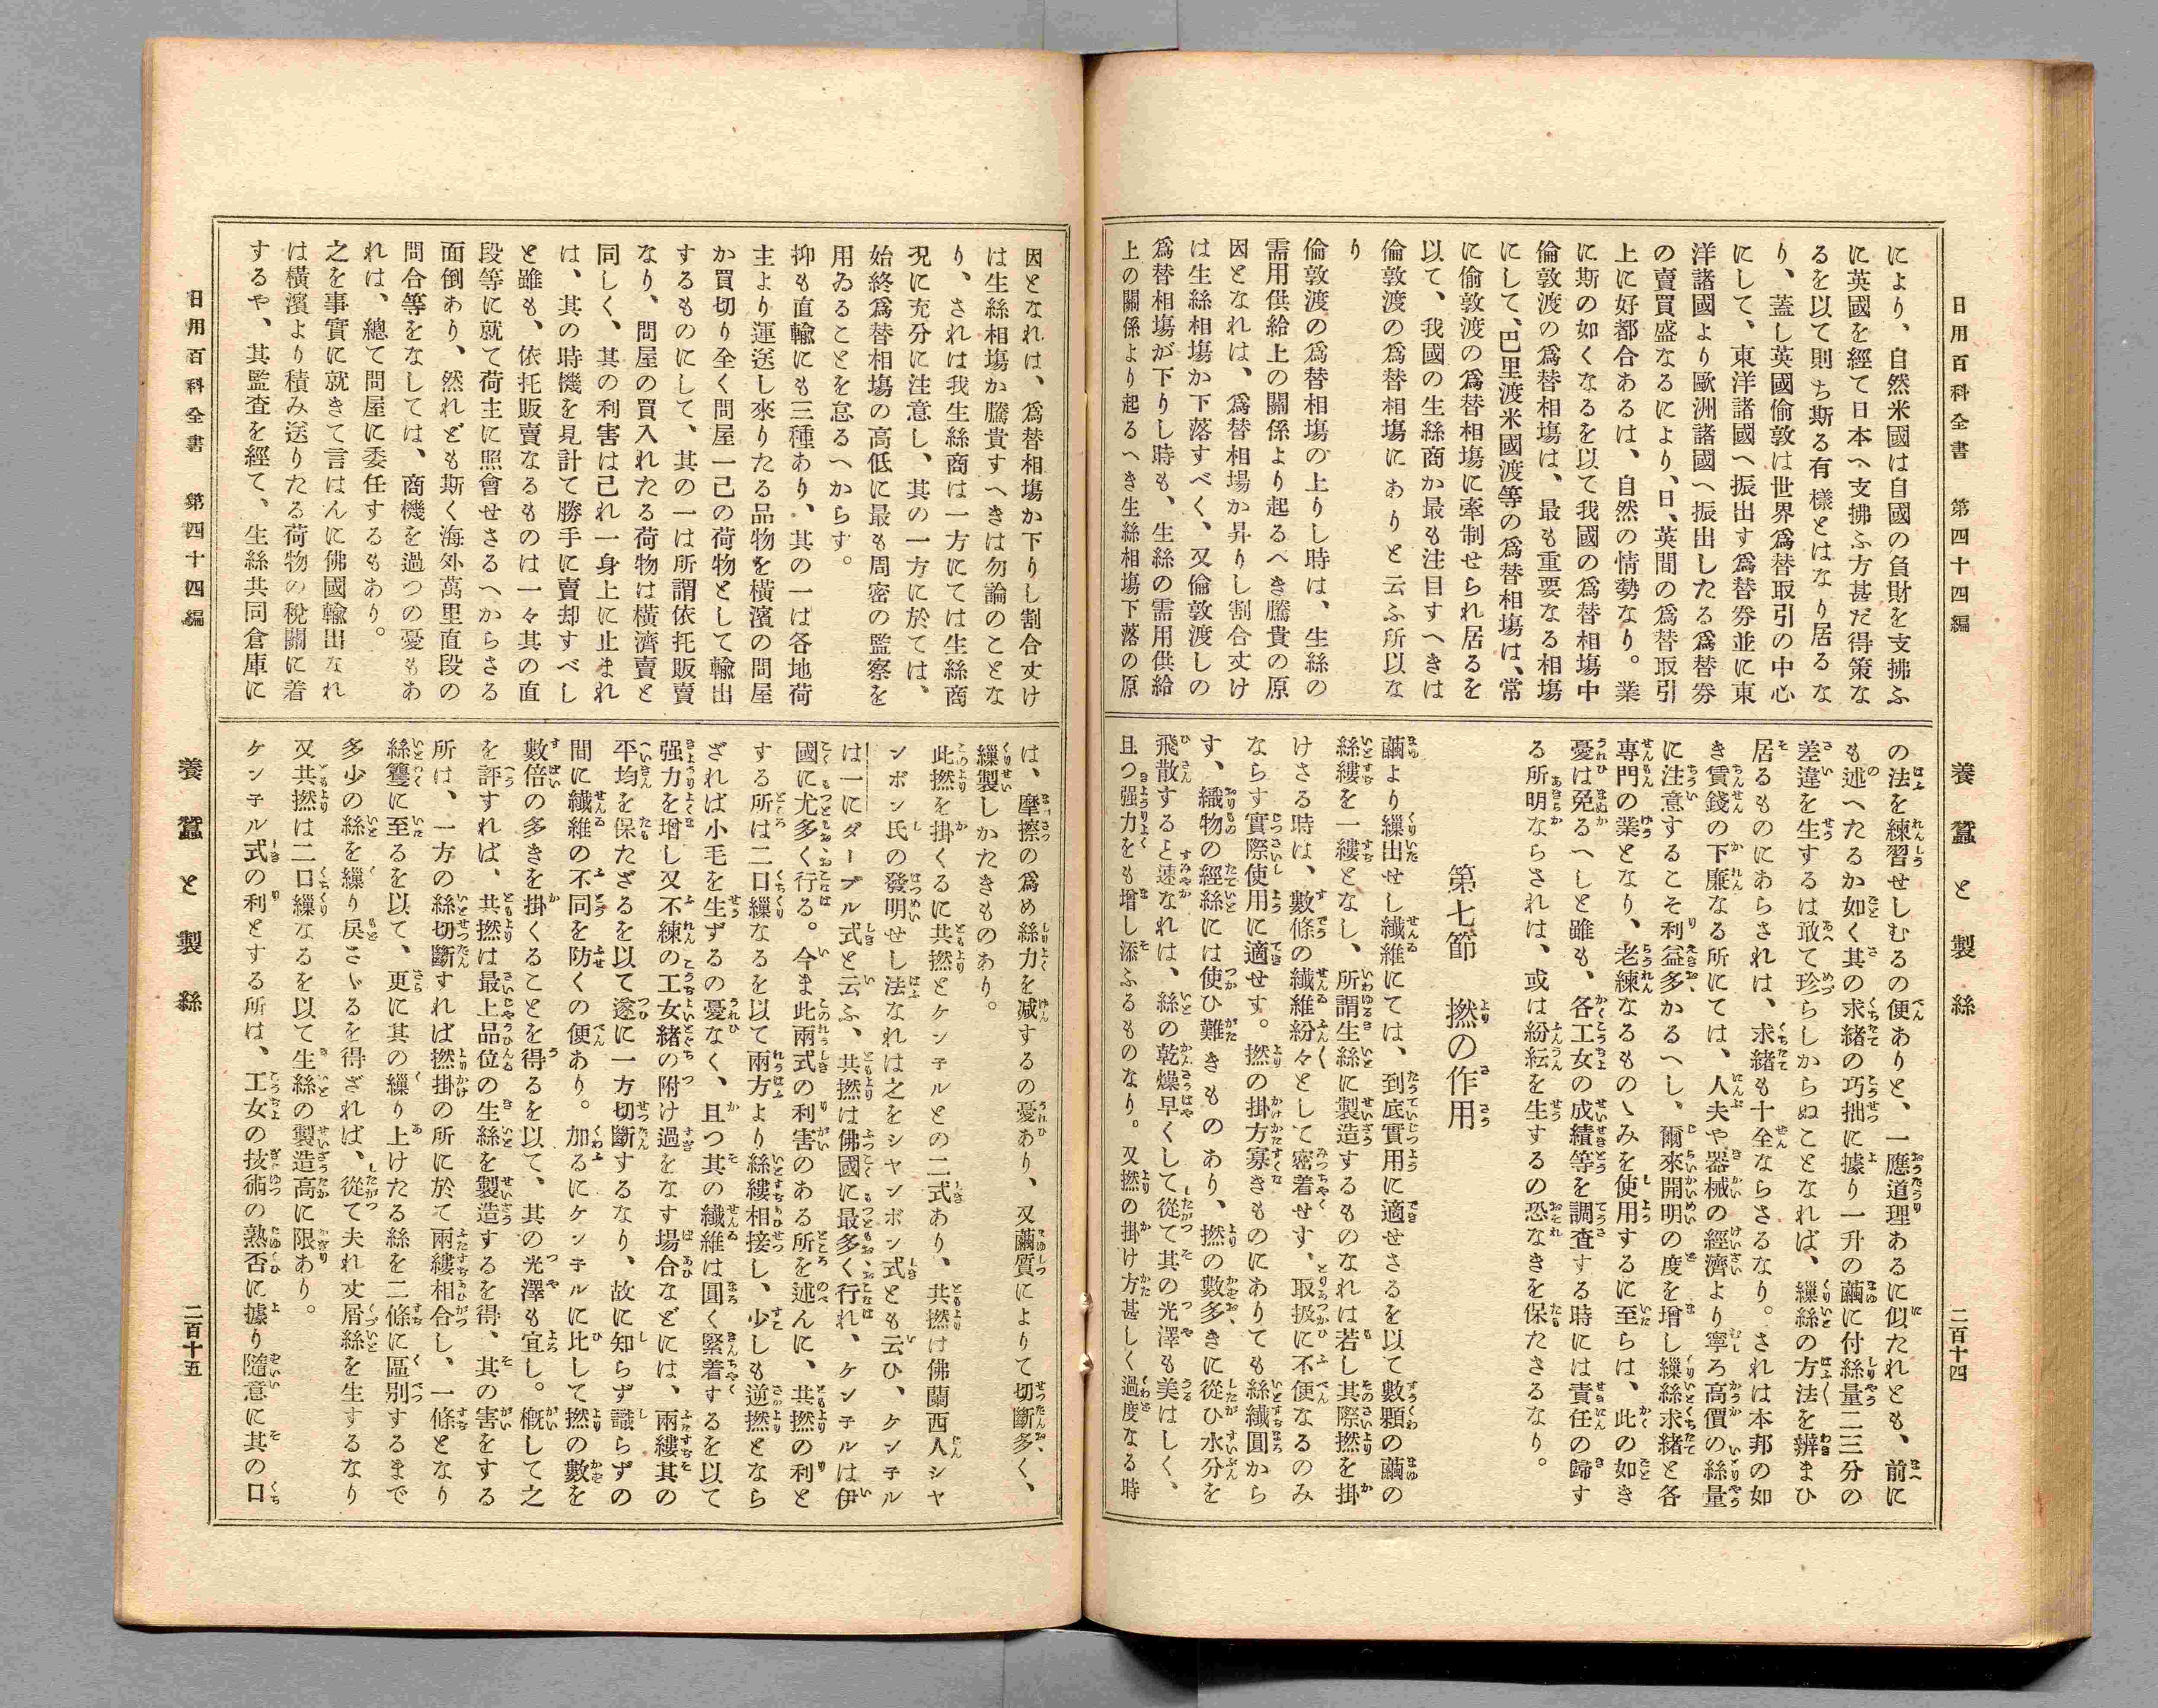 日用百科全書　第四十四編　養蠶と製絲　二百十四
により、自然米國は自國の負財を支拂ふ
に英國を經て日本へ支拂ふ方甚だ得策な
るを以て則ち斯る有樣とはなり居るな
り、蓋し英國倫敦は世界爲替取引の中心
にして、東洋諸國へ振出す爲替券並に東
洋諸國より歐洲諸國へ振出したる爲替券
の賣買盛なるにより、日、英間の爲替取引
上に好都合あるは、自然の情勢なり。業
に斯の如くなるを以て我國の爲替相塲中
倫敦渡の爲替相塲は、最も重要なる相塲
にして、巴里渡米國渡等の爲替相塲は、常
に倫敦渡の爲替相塲に牽制せられ居るを
以て、我國の生絲商か最も注目すへきは
倫敦渡の爲替相塲にありと云ふ所以な
り
倫敦渡の爲替相塲の上りし時は、生絲の
需用供給上の關係より起るべき騰貴の原
因となれは、爲替相塲か昇りし割合丈け
は生絲相塲か下落すべく、又倫敦渡しの
爲替相塲が下りし時も、生絲の需用供給
上の關係より起るへき生絲相塲下落の原
の法を練習せしむるの便ありと、一應道理あるに似たれとも、前に
も述へたるか如く其の求緒の巧拙に據り一升の繭に付絲量二三分の
差違を生するは敢て珍らしからぬことなれば、繅絲の方法を辨まひ
居るものにあらされは、求緒も十全ならさるなり。されは本邦の如
き賃錢の下廉なる所にては、人夫や器械の經濟より寧ろ高價の絲量
に注意するこそ利益多かるへし。爾來開明の度を增し繅絲求緒と各
專門の業となり、老練なるものゝみを使用するに至らは、此の如き
憂は免るへしと雖も、各工女の成績等を調査する時には責任の歸す
る所明ならされは、或は紛紜を生するの恐なきを保たさるなり。
第七節　撚の作用
繭より繅出せし纎維にては、到底實用に適せさるを以て數顆の繭の
絲縷を一縷となし、所謂生絲に製造するものなれは若し其際撚を掛
けさる時は、數條の纎維紛々として密着せす、取扱に不便なるのみ
ならす實際使用に適せす。撚の掛方寡きものにありても絲纎圓から
す、織物の經絲には使ひ難きものあり、撚の數多きに從ひ水分を
飛散すると速なれは、絲の乾燥早くして從て其の光澤も美はしく、
且つ强力をも增し添ふるものなり。又撚の掛け方甚しく過度なる時
因となれは、爲替相塲か下りし割合丈け
は生絲相塲か騰貴すへきは勿論のことな
り、されは我生絲商は一方にては生絲商
況に充分に注意し、其の一方に於ては、
始終爲替相塲の高低に最も周密の監察を
用ゐることを怠るへからす。
抑も直輸にも三種あり、其の一は各地荷
主より運送し來りたる品物を橫濱の問屋
か買切り全く問屋一己の荷物として輸出
するものにして、其の一は所謂依托販賣
なり、問屋の買入れたる荷物は橫濟賣と
同しく、其の利害は己れ一身上に止まれ
は、其の時機を見計て勝手に賣却すべし
と雖も、依托販賣なるものは一々其の直
段等に就て荷主に照會せさるへからさる
面倒あり、然れども斯く海外萬里直段の
問合等をなしては、商機を過つの憂もあ
れは、總て問屋に委任するもあり。
之を事實に就きて言はんに佛國輸出なれ
は橫濱より積み送りたる荷物の稅關に着
するや、其監査を經て、生絲共同倉庫に
は、摩擦の爲め絲力を减するの憂あり、又繭質によりて切斷多く、
繅製しかたきものあり。
此撚を掛くるに共撚とケンネルとの二式あり、共撚け佛蘭西人シャ
ンボン氏の發明せし法なれは之をシヤンボン式とも云ひ、ケンネル
は一にダーブル式と云ふ、共撚は佛國に最多く行れ、ケンネルは伊
國に尤多く行る。今ま此兩式の利害のある所を述んに、共撚の利と
する所は二口繅なるを以て兩方より絲縷相接し、少しも逆撚となら
ざれば小毛を生ずるの憂なく、且つ其の纎維は圓く緊着するを以て
强力を增し又不練の工女緒の附け過をなす塲合などには、兩縷其の
平均を保たざるを以て遂に一方切斷するなり、故に知らず識らずの
間に纎維の不同を防くの便あり。加るにケンネルに比して撚の數を
數倍の多きを掛くることを得るを以て、其の光澤も宜し。槪して之
を評すれば、共撚は最上品位の生絲を製造するを得、其の害をする
所は、一方の絲切斷すれば撚掛の所に於て兩縷相合し、一條となり
絲籰に至るを以て、更に其の繅り上けたる絲を二條に區別するまで
多少の絲を繅り戾さゞるを得ざれば、從て夫れ丈屑絲を生するなり
又共撚は二口繅なるを以て生絲の製造高に限あり。
ケンネル式の利とする所は、工女の技術の熟否に據り隨意に其の口
日用百科全書　第四十四編　養蠶と製絲　二百十五